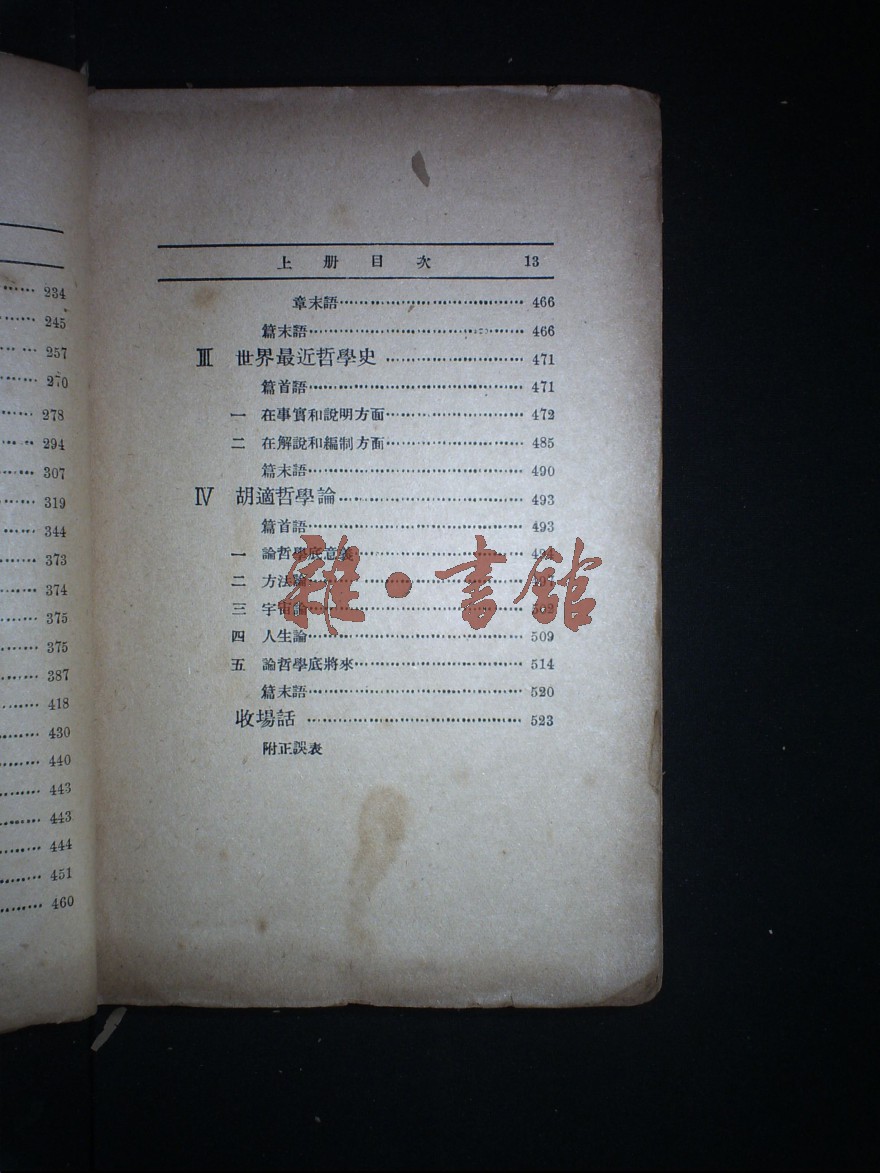 234
245
257
270
278
294
307
319
344
373
374
375
375
387
418
430
440
443
443
444
451
460
上册目次 13
章末語 466
篇末語 466
Ⅲ 世界最近哲學史 471
篇首語 471
一 在事實和說明方面 472
二 在解說和編制方面 485
篇末語 490
Ⅳ 胡適哲學論 493
篇首語 493
一 論哲學底意義 494
二 方法論 497
三 宇宙論 502
四 人生論 509
五 論哲學底將來 514
篇末語 520
收場話 523
附正誤表
雜·書館